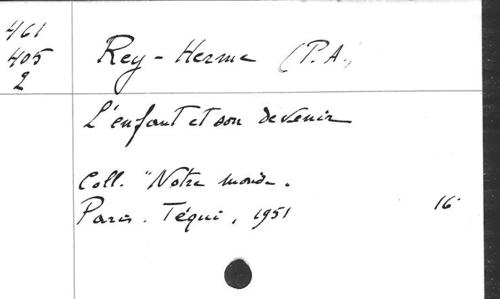 461
405
2
Rey-Herme (P.A.)
L'enfant et son devenir
Coll. "Notre monde.
Paris. Téqui, 1951 16°